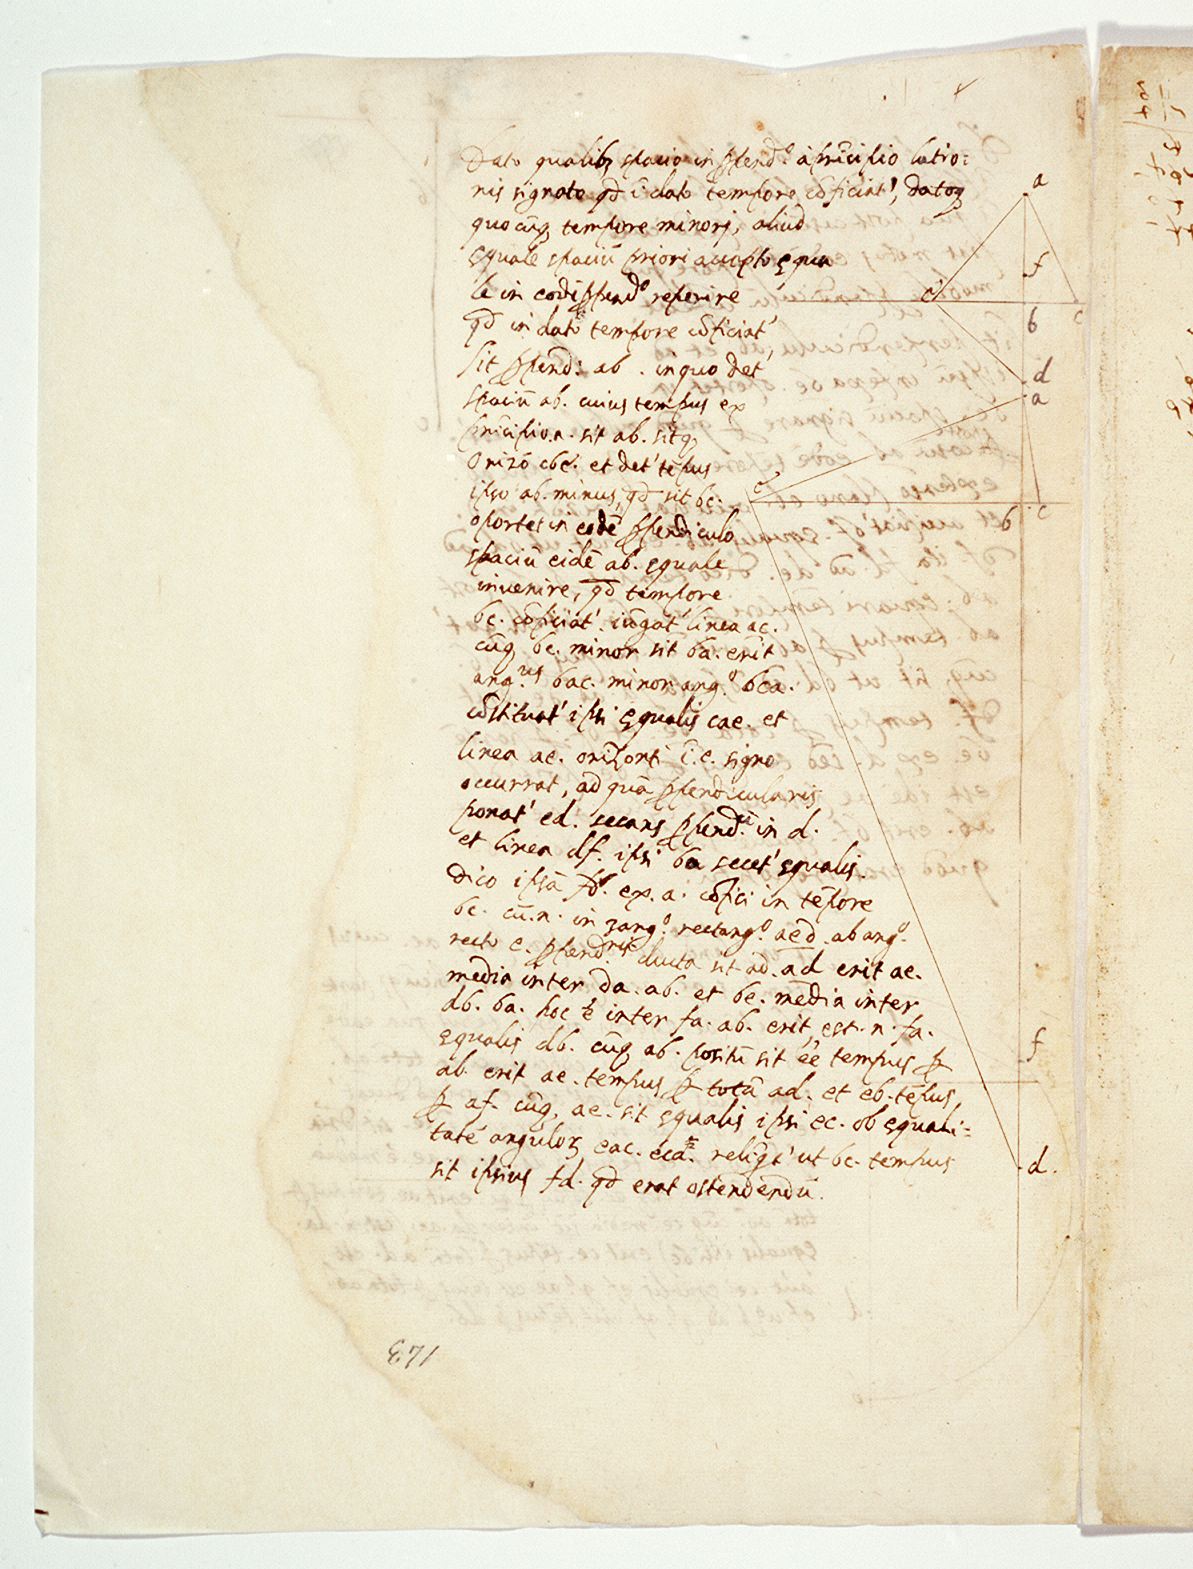 Dato quolibꝫ spacio in ꝑpend.º a principio latio=
nis signato qd ī dato tempore cōficiat', datoqꝫ
quocūqꝫ tempore minori, aliud
ęquale spaciū priori accepto ęqua
le in eodē ꝑpend.º reperire
qd in dato tempore cōficiat'
sit ꝑpend: ab. in quo det'
spaciū ab. cuius tempus ex
principio .a. sit ab. sitqꝫ
orizō cbe. et det' tēpus
ipso ab. minus, qd sit bc.
oportet in eodē ꝑpendiculo
spaciū eidē ab. ęquale
invenire, qd tempore
bc. cōficiat'. iūgat' linea ac.
cūqꝫ bc. minor sit ba. erit
ang.us bac. minor ang.º bca.
cōstituat' ipsi ęqualis cae. et
linea ae. orizonti ī .e. signo
occurrat, ad quā ꝑpendicularis
ponat' ed. secans ꝑpend. in d.
et linea df. ipsi ba secet' ęqualis.
Dico ipsā fd. ex .a. cōfici in tēpore
bc. cū .n. in ang.º rectang.º aed. ab ang.º
recto e. ꝑpend.ris ducta sit ad. ad erit ae.
media inter da. ab. et be. media inter
db. ba. hoc ē inter fa. ab. erit, est .n. fa.
ęqualis db. cūqꝫ ab. positū sit ēē tempus ꝑ
ab. erit ae. tempus ꝑ totā ad. et eb. tēpus,
ꝑ af. cūqꝫ, ae. sit ęqualis ipsi ec. ob ęquali=
tatē angulorꝫ eac. eca. relīqt' ut bc. tempus
sit ipsius fd. qd erat ostendendū.
a
f
e
b
c
d
a
e
b
c
f
d.
173